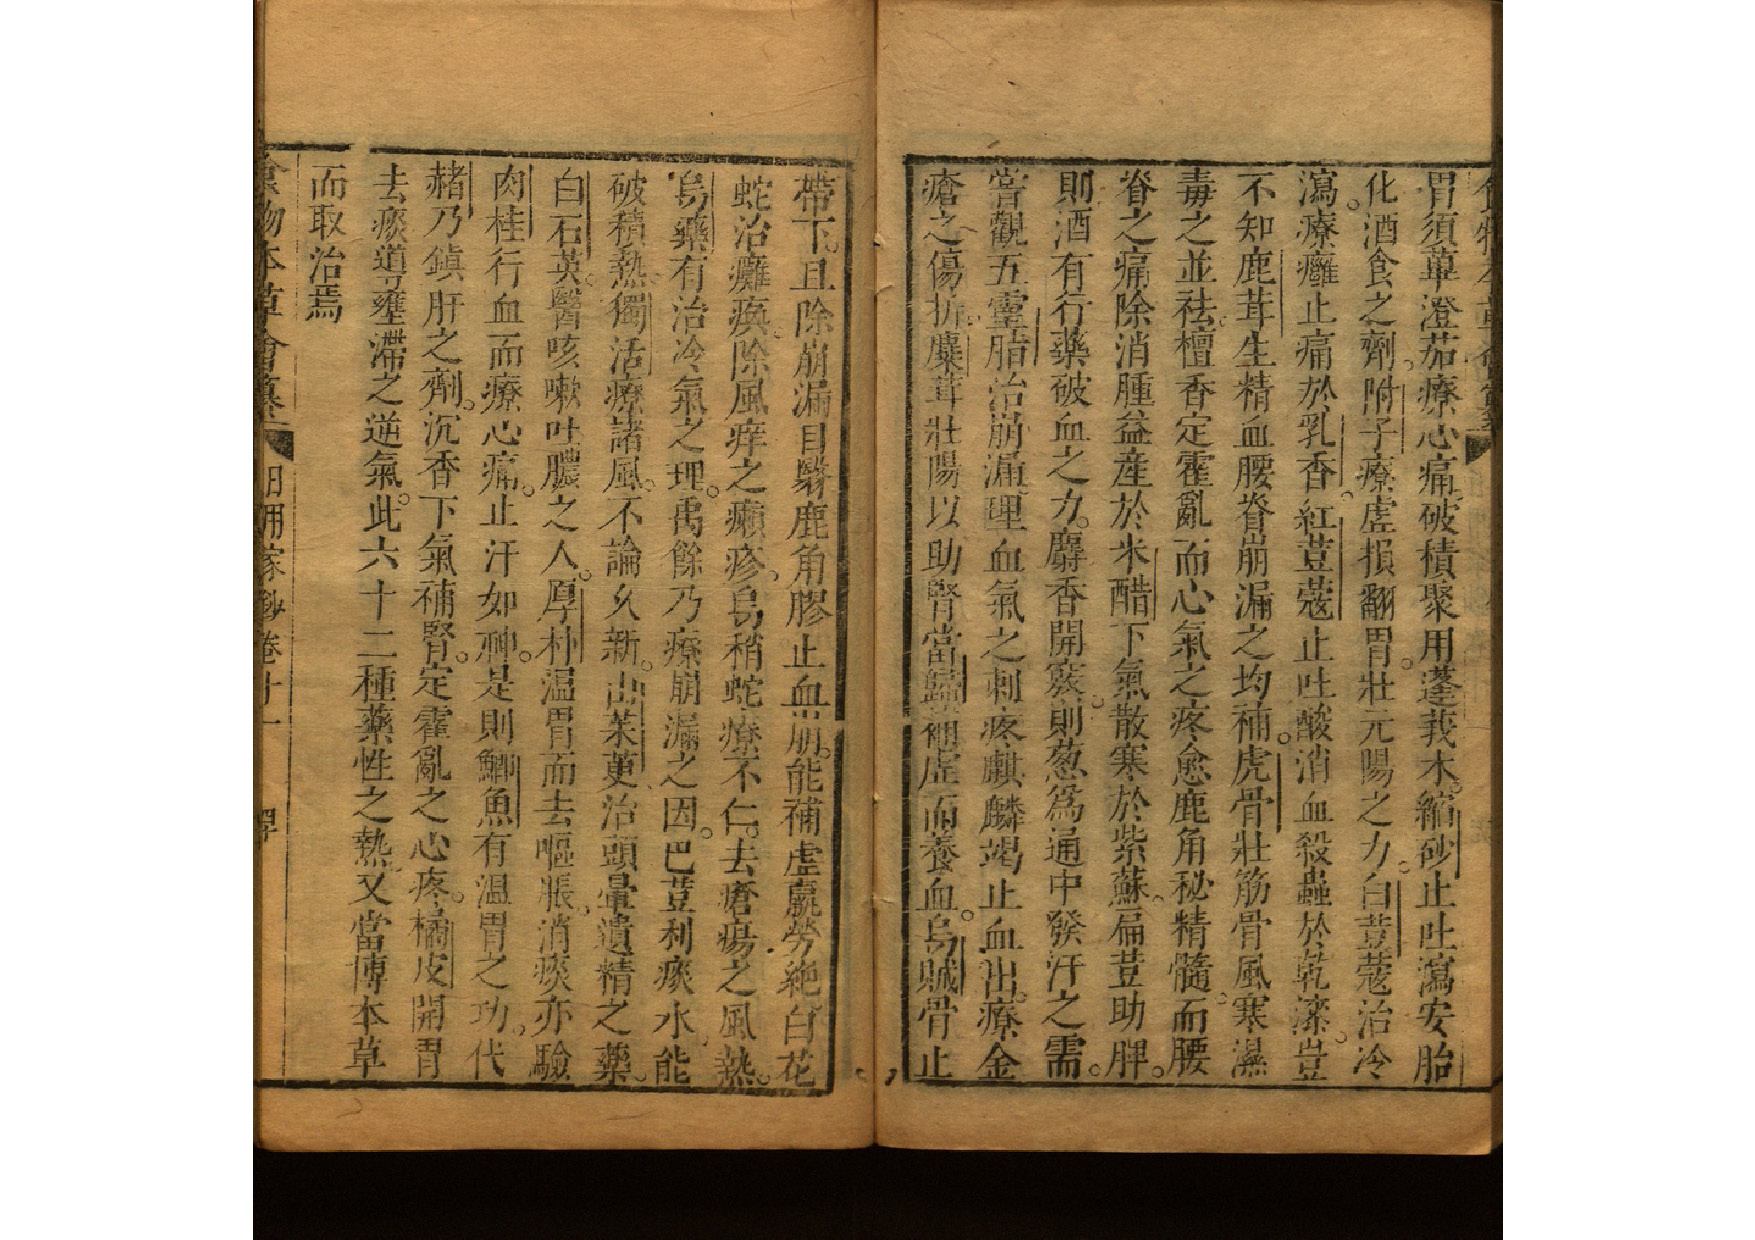 胃須蓽澄茄療心痛破積聚用蓬莪木縮砂止吐瀉安胎
化酒食之劑附子療虛損翻胃壯元陽之力白荳蔻治冷
瀉療癰止痛於乳香紅荳蔻止吐酸消血殺蟲於乾漆豈
不知鹿茸生精血腰脊崩漏之均補虎骨壯筋骨風寒濕
毒之並祛檀香定霍亂而心氣之疼愈鹿角秘精髓而腰
脊之痛除消腫益產於米醋下氣散寒於紫蘇扁荳助脾
則酒有行藥破血之力麝香開竅則葱爲通中發汗之需
嘗觀五靈脂治崩漏理血氣之刺疼麒麟竭止血出療金
瘡之傷折麋茸壯陽以助腎當歸補虛而養血烏賊骨止
帶下且除崩漏目翳鹿角膠止血崩能補虛羸勞絶白花
蛇治癱瘓除風痒之癩疹烏稍蛇療不仁去瘡瘍之風熱
烏藥有治冷氣之理禹餘乃療崩漏之因巴荳利痰水能
破積熱獨活療諸風不論久新山茱萸治頭暈遺精之藥
白石英醫咳嗽吐膿之人厚朴溫胃而去嘔脹消痰亦驗
肉桂行血而療心痛止汗如神是則鯽魚有溫胃之功代
赭乃鎮肝之劑沉香下氣補腎定霍亂之心疼橘皮開胃
去痰導壅滯之逆氣此六十二種藥性之熱又當博本草
而取治焉
食物本草會纂 日用家鈔卷十一